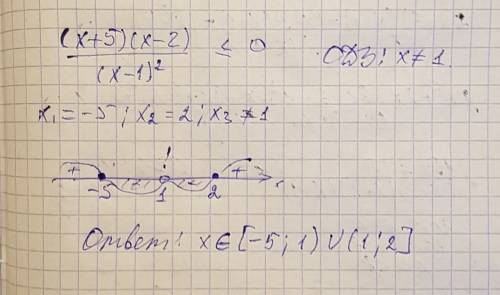 (x+5)(x-2) / (x-1)² ≤ 0 ОДЗ: x≠1.
x₁=-5; x₂=2; x₃≠1
+ - ! - +
-5 1 2 x
Ответ: x∈[-5;1)∪(1;2]